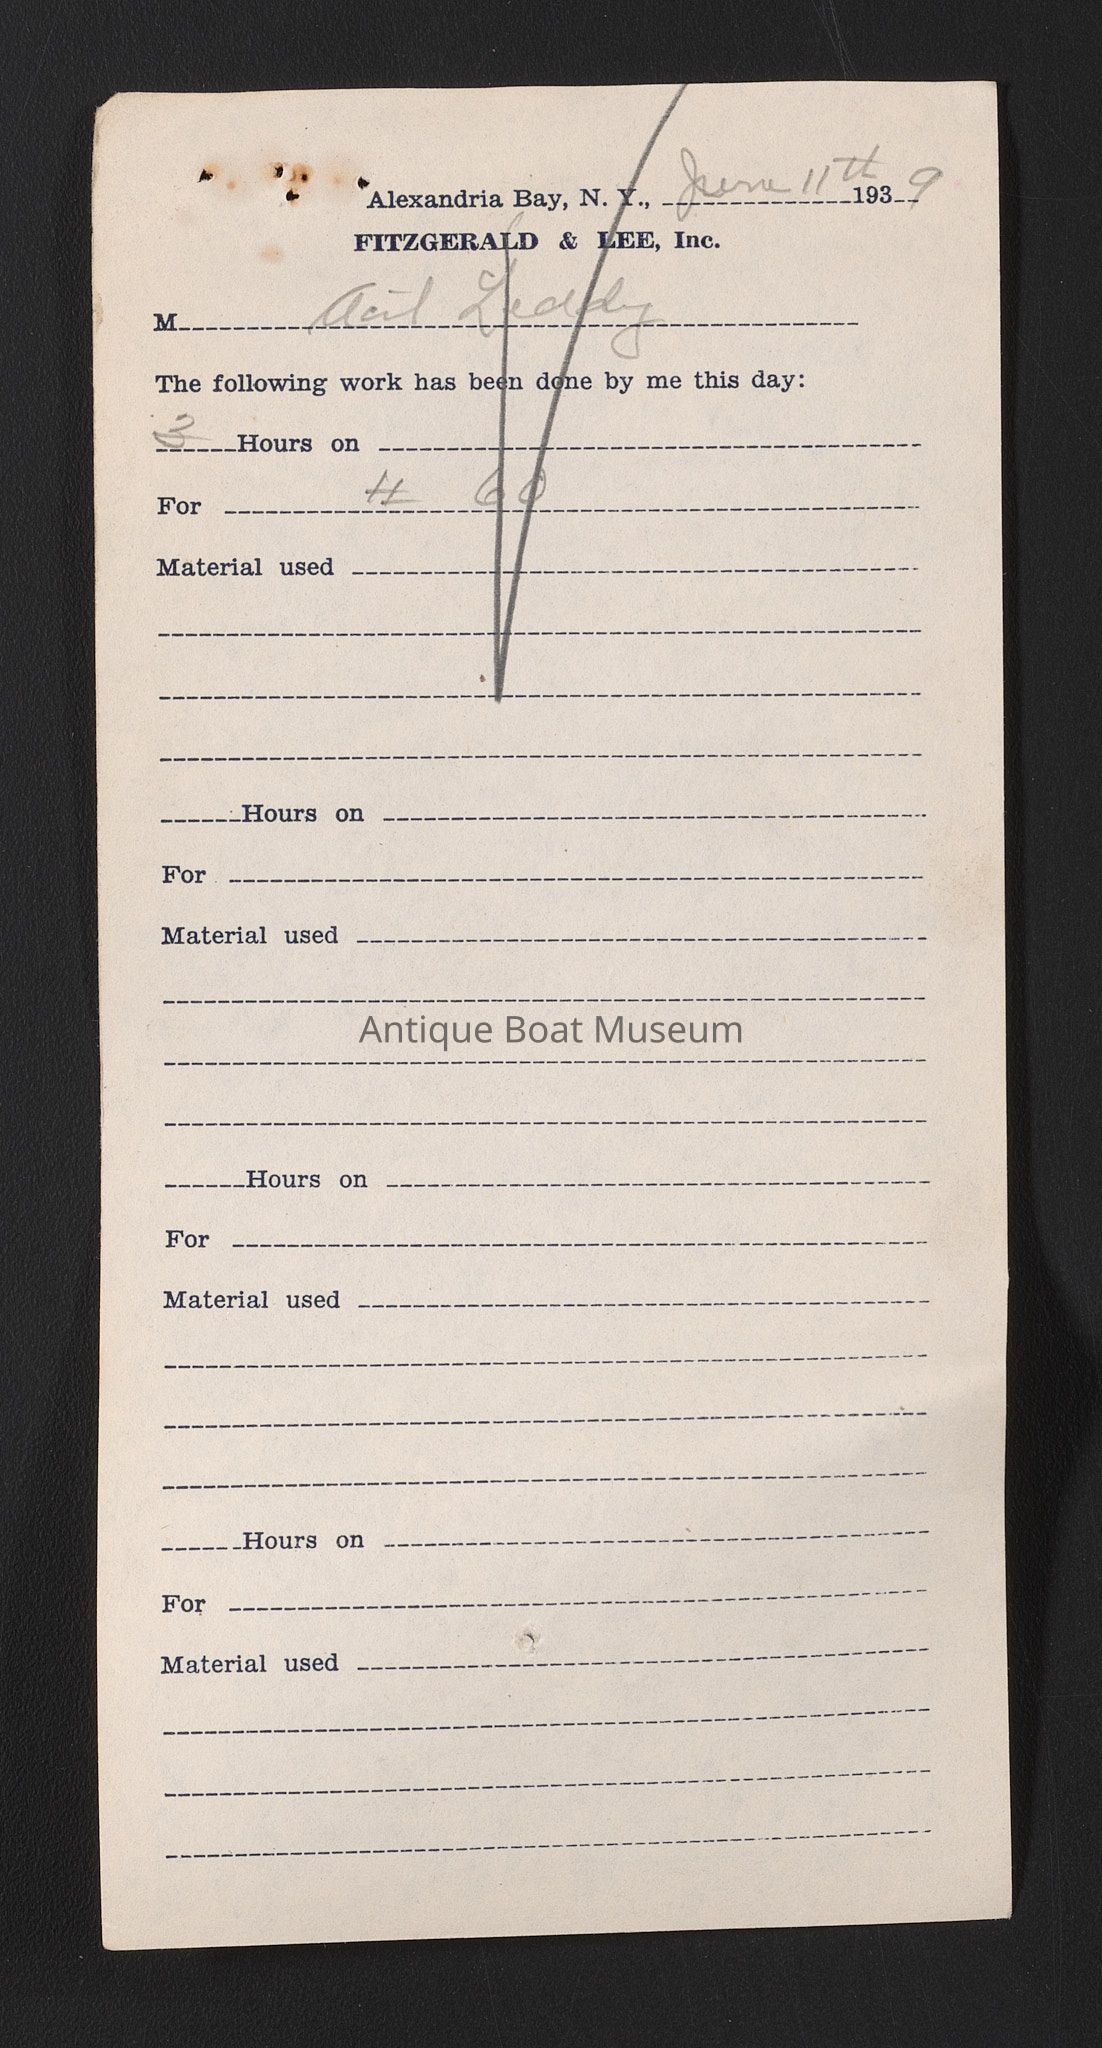 Alexandria Bay, N. Y., June 11th 1939
FITZGERALD & LEE, Inc.
M Leddy
The following work has been done by me this day:
3 Hours on
For # 60
Material used
Hours on
For
Material used
Antique Boat Museum
Hours on
For
Material used
Hours on
For
Material used